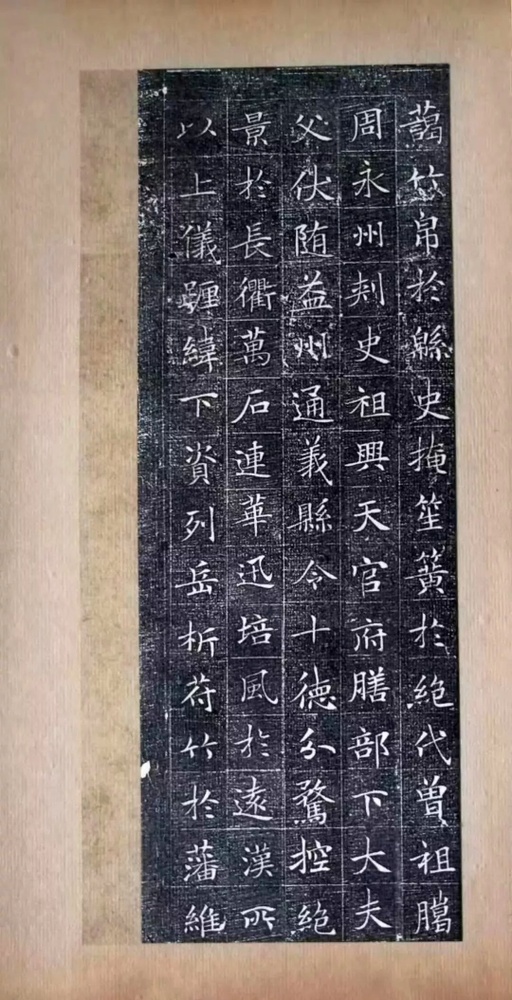 蔼竹帛於緜史掩笙簧於絶代曾祖騰
周永州刾史祖興天官府膳部下大夫
父伏随益州通義縣令十德分騖控絶
景於長衢萬石連華迅培風於遠漢所
以上儀躔緯下資列岳析苻竹於藩維